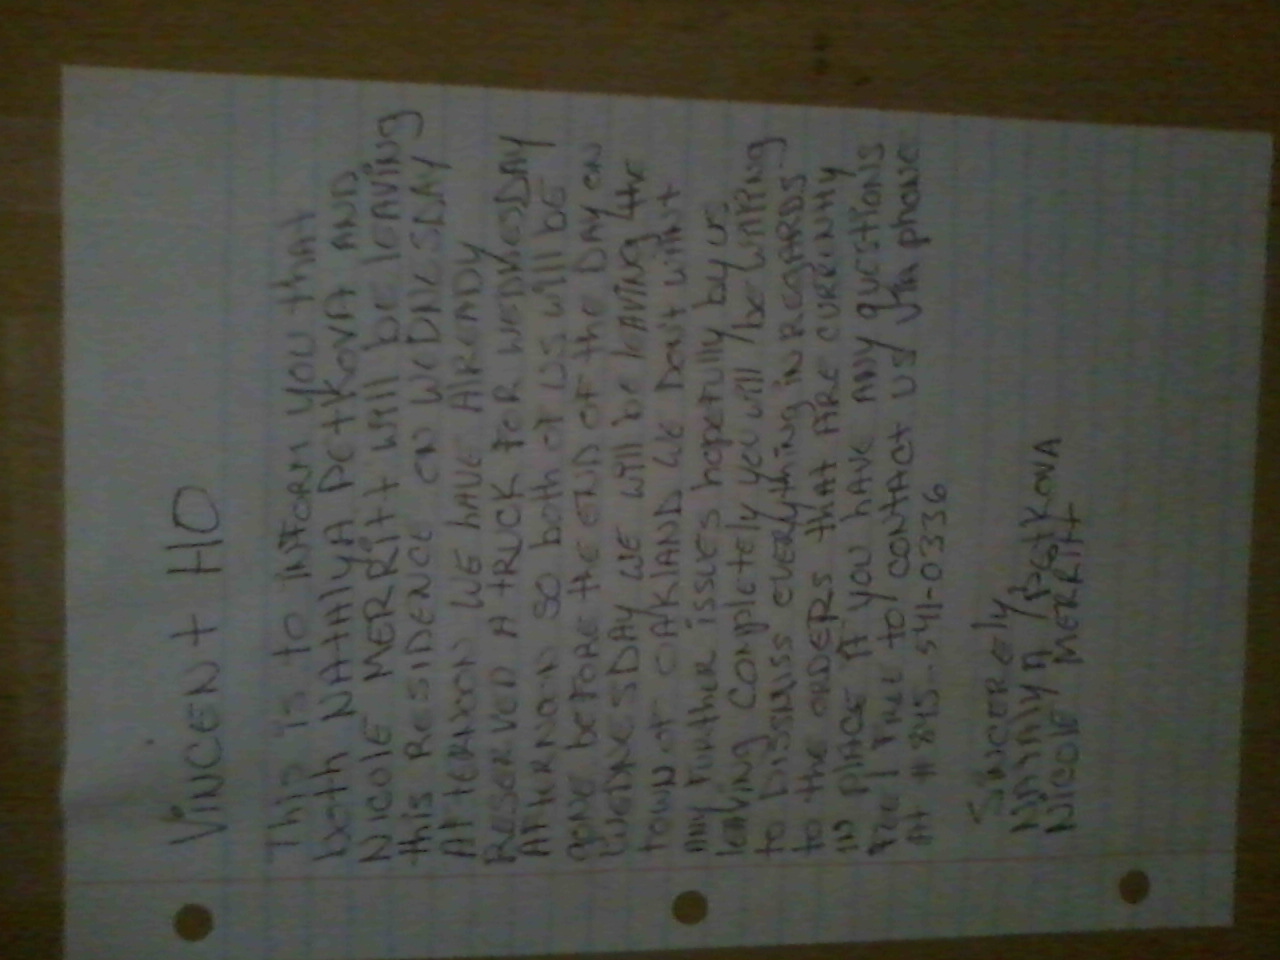 VINCENT HO
This is to INFORM YOU that
both NATALYA PETKOVA AND
NICOLE MERRitt will be LEAVING
this RESIDENCE ON WEDNESDAY
AFTERNOON WE HAVE AlREADY
RESERVED A TRUCK FOR WEDNESDAY
AFTERNOON SO both of US will be
gONE bEFORE thE END OF thE DAY ON
WEDNESDAY WE will be leAVING the
town of OAKlAND WE Don't WANt
any further issues hopefully by us
leAVING COMPLEtELY you will be willing
to DISSMISS EVERYthING IN REGARDS
to the ORDERS thAt ARE CURRENtly
IN PlACE If YOU hAVE ANY QUESTIONS
FEEl FREE to CONTACT US VIA phONE
At # 845-541-0336
SINCERELY
NATAlYA PetKOVA
NICOlE MERRItt